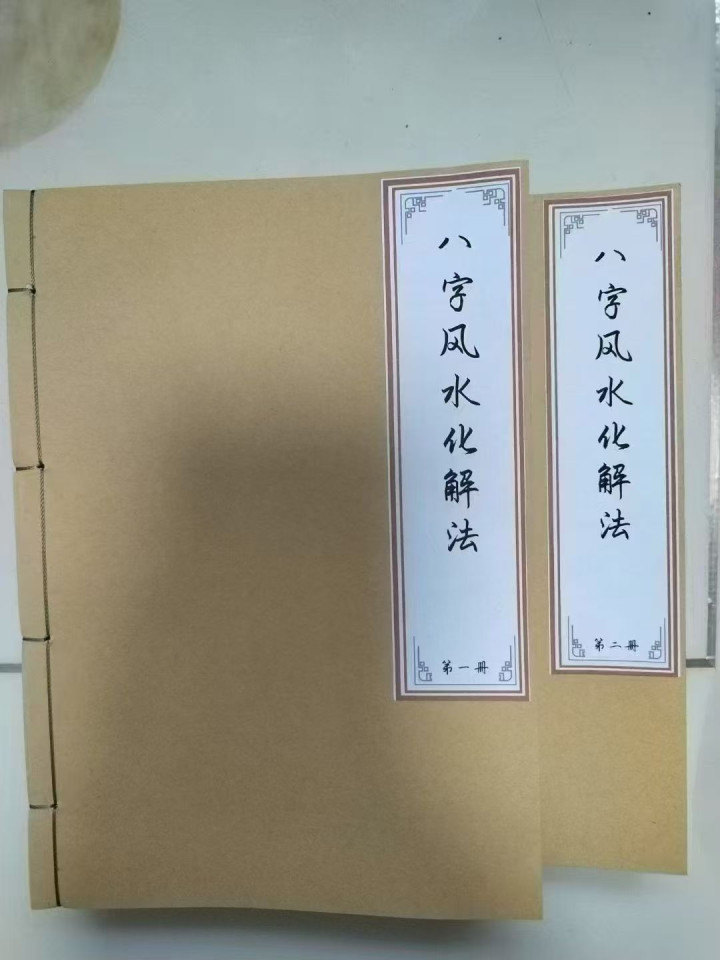 八字风水化解法
第一册
八字风水化解法
第二册